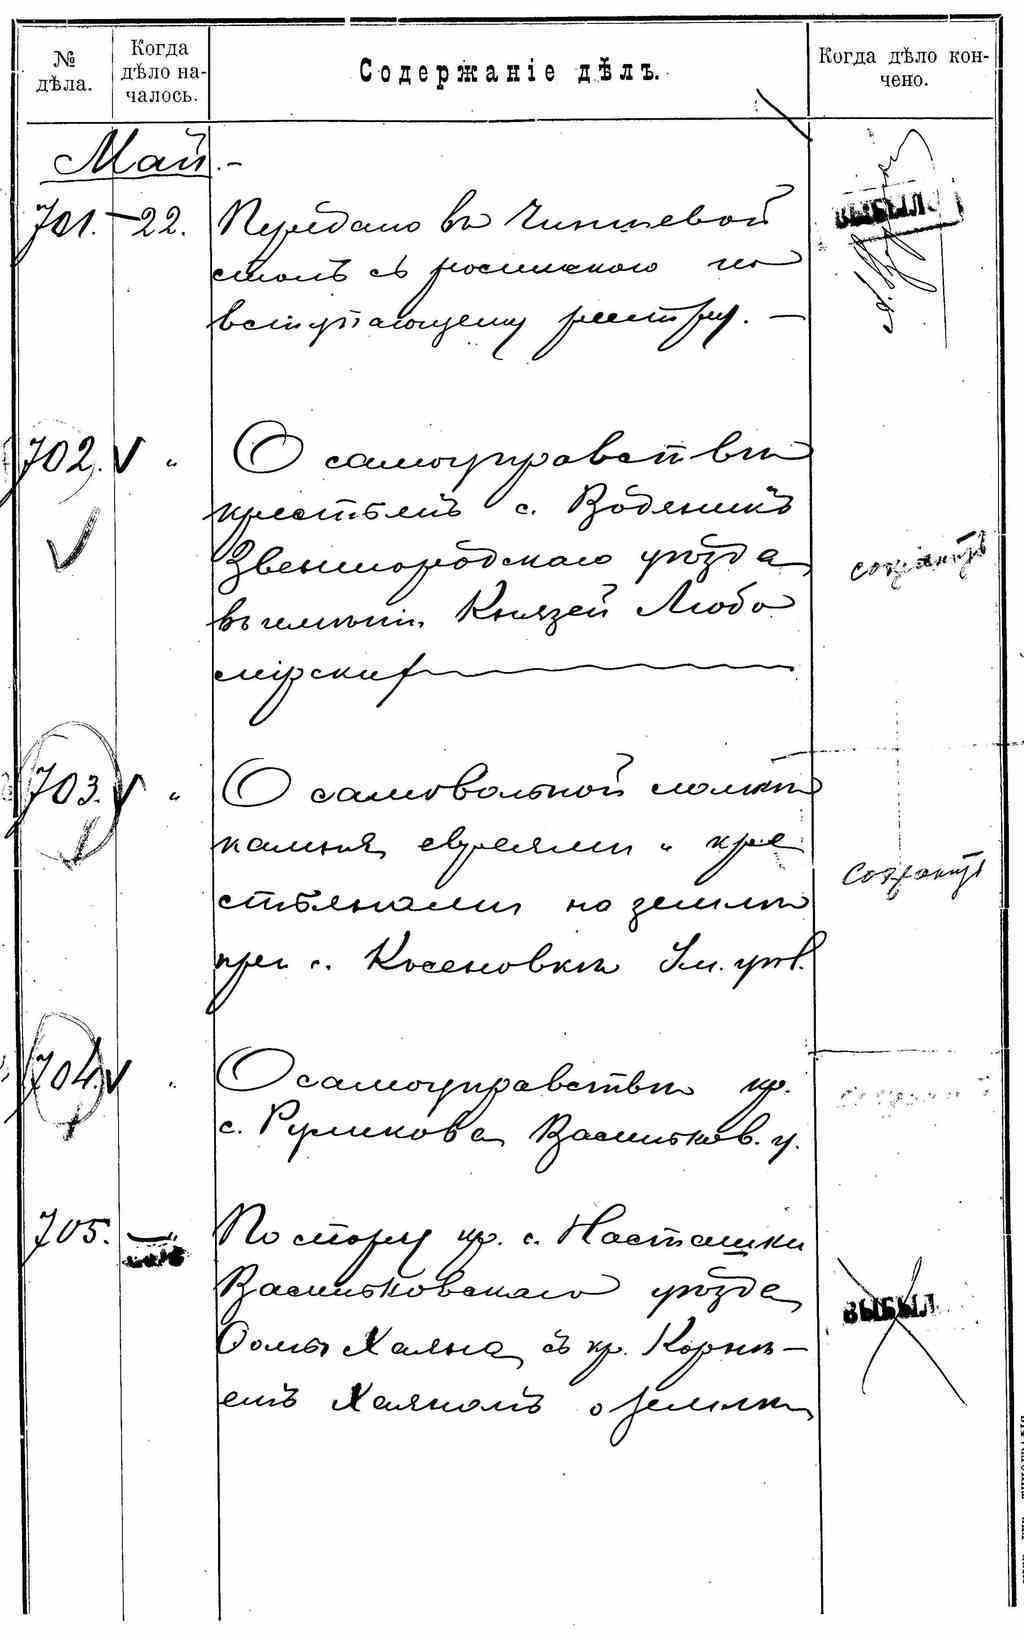 № дѣла.
Когда дѣло на-
чалось.
Содержаніе дѣлъ.
Когда дѣло кон-
чено.
Май. –
701. – 22. Передано въ Чиншевой
столъ съ росписк по
вступающему реестру. –
ВЫБЫЛО
702. V " О самоуправствѣ
крестьянъ с. Водяникъ
Звенигородскаго уѣзда
въ имѣніи Князей Любо
мірскихъ
сохранитъ
703. V " О самовольной ломкѣ
камня евреями и кре
стьянами на землѣ
при с. Косеновкѣ Ум. уѣз.
сохранитъ
704. V " О самоуправствѣ кр.
с. Руликова Васильков. у.
705. " По спору кр. с. Насташки
Васильковскаго уѣзда
Ѳомы Хаяна съ кр. Корнѣ–
емъ Хаяномъ о землѣ
ВЫБЫЛ